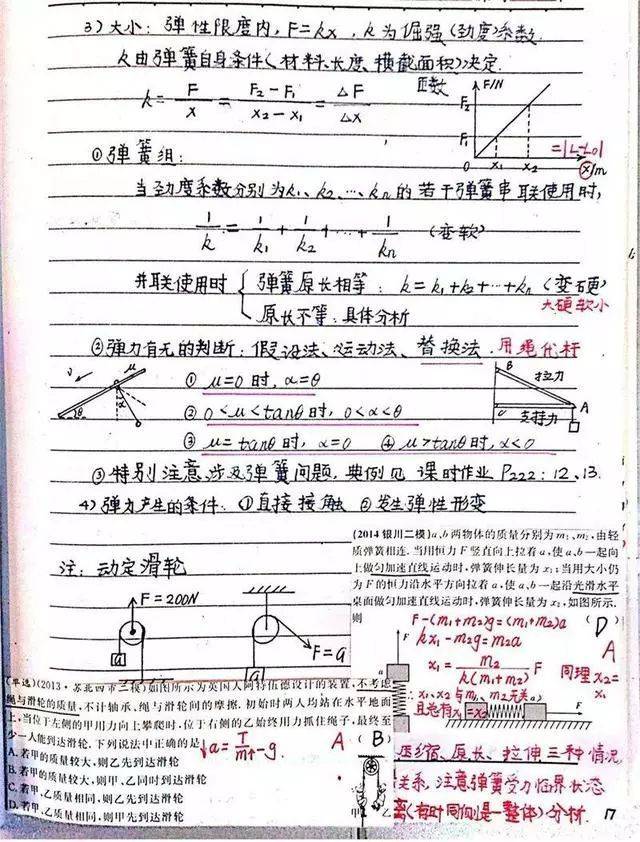 3)大小：弹性限度内，F=kx，k为倔强(劲度)系数.
k由弹簧自身条件(材料、长度、横截面积)决定.
k = F/x = (F₂-F₁)/(x₂-x₁) = ΔF/Δx
F/N
F₂
F₁
0 x₁ x₂ x/m
=|L-L₀|
①弹簧组：
当劲度系数分别为k₁、k₂、…、kₙ的若干弹簧串联使用时，
1/k = 1/k₁ + 1/k₂ + … + 1/kₙ (变软)
并联使用时{弹簧原长相等：k=k₁+k₂+…+kₙ(变硬)
大硬软小
原长不等：具体分析
②弹力有无的判断：假设法、运动法、替换法.用绳代杆
① μ=0时，α=θ
② 0<μ<tanθ时，0<α<θ
③ μ=tanθ时，α=0 ④ μ>tanθ时，α<0
v μ α θ
B 拉力 A
C 支持力
③特别注意涉及弹簧问题，典例见 课时作业P222：12、13.
4)弹力产生的条件：①直接接触 ②发生弹性形变
注：动定滑轮
F=200N
a
F=a
a
(2014银川二模)a、b两物体的质量分别为m₁、m₂,由轻
质弹簧相连.当用恒力F竖直向上拉着a,使a、b一起向
上做匀加速直线运动时,弹簧伸长量为x₁;当用大小仍
为F的恒力沿水平方向拉着a,使a、b一起沿光滑水平
桌面做匀加速直线运动时,弹簧伸长量为x₂,如图所示.
则 (D)
F-(m₁+m₂)g=(m₁+m₂)a
A
kx₁-m₂g=m₂a
x₁ = m₂/k(m₁+m₂) F 同理x₂=x₁
∴x₁、x₂与m₁、m₂无关
且总有x₁=x₂
(单选)(2013·苏北四市三模)如图所示为英国人阿特伍德设计的装置,不考虑
绳与滑轮的质量,不计轴承、绳与滑轮间的摩擦.初始时两人均站在水平地面
上,当位于左侧的甲用力向上攀爬时,位于右侧的乙始终用力抓住绳子,最终至
少一人能到达滑轮.下列说法中正确的是 A (B)
a = T/m - g.
A.若甲的质量较大,则乙先到达滑轮
B.若甲的质量较大,则甲、乙同时到达滑轮
C.若甲、乙质量相同,则乙先到达滑轮
D.若甲、乙质量相同,则甲先到达滑轮
甲 乙
压缩、原长、拉伸三种情况
关系,注意弹簧受力临界状态
离(有时同侧是一整体)分析.
17